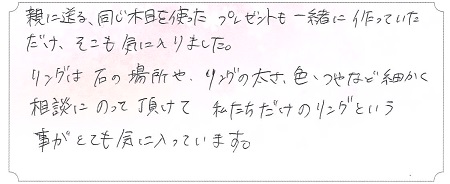 親に送る、同じ木目を使った プレゼントも一緒に作っていた
だけ、そこも気に入りました。
リングは 石の場所や、リングの太さ、色、つやなど細かく
相談にのって頂けて 私たちだけのリングという
事がとても気に入っています。